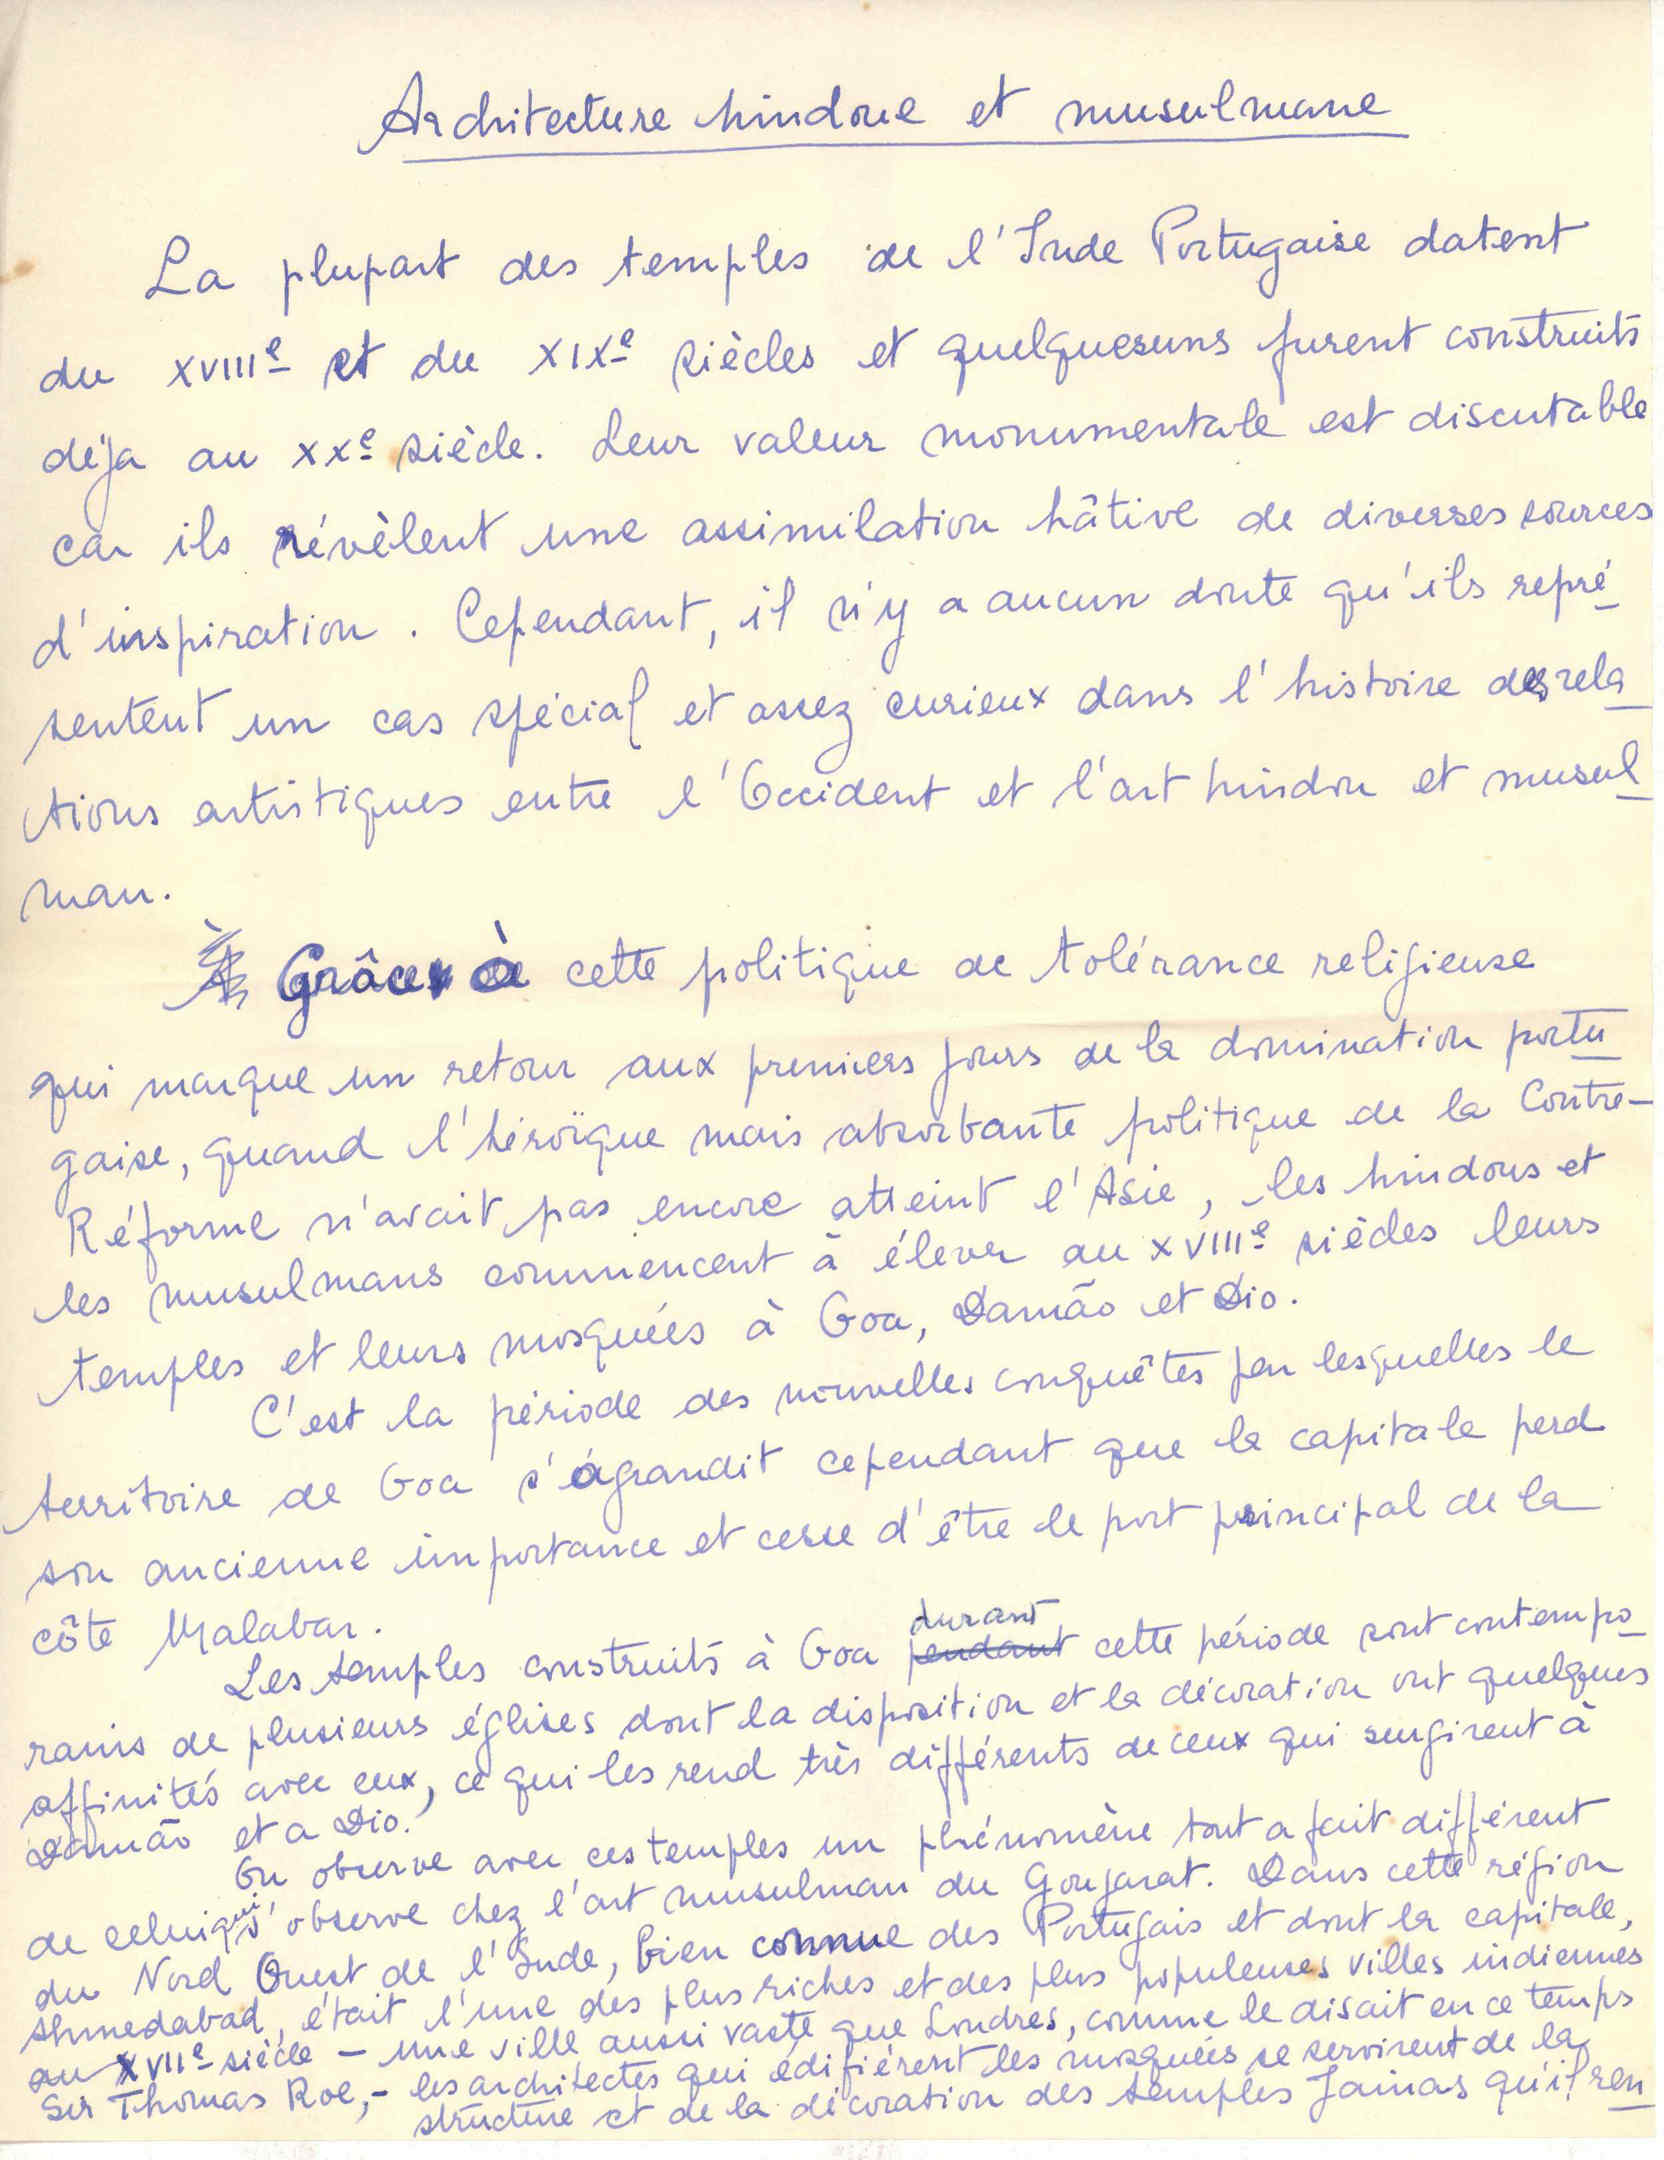 Architecture hindoue et musulmane
La plupart des temples de l'Inde Portugaise datent
du XVIIIe et du XIXe siècles et quelquesuns furent construits
déja au XXe siècle. Leur valeur monumentale est discutable
car ils révèlent une assimilation hâtive de diverses sources
d'inspiration. Cependant, il n'y a aucun doute qu'ils repré
sentent un cas spécial et assez curieux dans l'histoire des rela
tions artistiques entre l'Occident et l'art hindou et musul
man.
À Grâce à cette politique de tolérance religieuse
qui marque un retour aux premiers jours de la domination portu
gaise, quand l'héroïque mais absorbante politique de la Contre-
Réforme n'avait pas encore atteint l'Asie, les hindous et
les musulmans commencent à élever au XVIIIe siècles leurs
temples et leurs mosquées à Goa, Damão et Dio.
C'est la période des nouvelles conquêtes par lesquelles le
territoire de Goa s'agrandit cependant que la capitale perd
son ancienne importance et cesse d'être le port principal de la
côte Malabar.
durant
Les temples construits à Goa pendant cette période sont contempo
rains de plusieurs églises dont la disposition et la décoration ont quelques
affinités avec eux, ce qui les rend très différents de ceux qui surgirent à
Damão et a Dio.
On observe avec ces temples un phénomène tout a fait différent
de celui qui s'observe chez l'art musulman du Goujarat. Dans cette région
du Nord Ouest de l'Inde, bien connue des Portugais et dont la capitale,
Ahmedabad, était l'une des plus riches et des plus populeuses villes indiennes
au XVIIe siècle - une ville aussi vaste que Londres, comme le disait en ce temps
Sir Thomas Roe,- les architectes qui édifiérent les mosquées se servirent de la
structure et de la décoration des temples Jainas qu'il ren